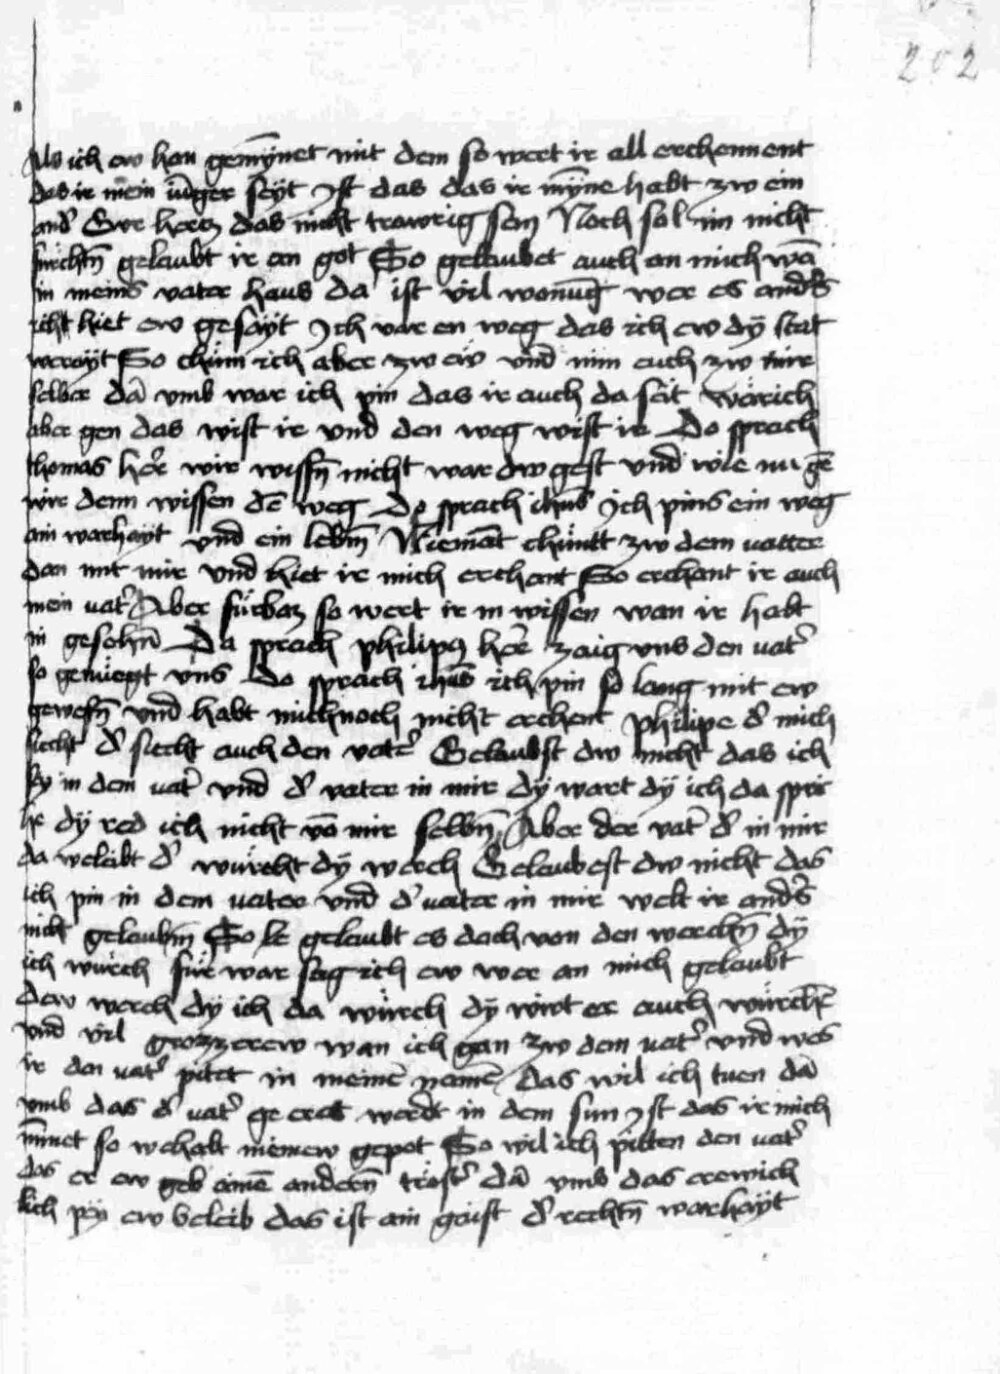 202
Als ich ew han gemynet mit dem so wert ir all erchennent
das ir mein iunger seyt Ist das das ir myne habt zw ein
and' Ewr hercz das nicht trawrig sey Noch sol im nicht
furchtn̄ gelaubt ir an got So gelaubet auch an mich wā
in meins vater haus da ist vil wonūg wer es anders
icht hiet ew gesayt Ich var en weg das ich ew dÿ stat
werayt So chüm ich aber zw ew vnd nim euch zw mir
selber dā vmb war ich pin das ir auch da seit war ich
aber gen das wist ir vnd den weg wist ir Do sprach
thomas her' wir wissn̄ nicht war dw gest vnd wie mugē
wir denn wissen dē weg Do sprach ihūs Ich pins ein weg
ain warhayt vnd ein lebn̄ Niemāt chümt zw dem vatter
dan mit mir vnd hiet ir mich erchant So erchant ir auch
mein vat' Aber fürbaz so wert ir in wissen wan ir habt
in gesehn̄ Da sprach philipus her' zaig vns den vat'
so genüegt vns Do sprach ihūs ich pin so lang mit ew
gewesn̄ vnd habt mich noch nicht erchent philipe d' mich
siecht d' siecht auch den vat' Gelaubst dw nicht das ich
sy in dem vat' vnd d' vater in mir dÿ wart dÿ ich da spri
he dÿ red ich nicht vō mir selbn̄ Aber der vat' d' in mir
da weleibt d' würcht dÿ werch Gelaubest dw nicht das
ich pin in dem vater vnd d' vater in mir welt ir and's
nicht gelaubn̄ So gelaubt es doch von den werchn̄ dÿ
ich würch für war sag ich ew wer an mich gelaubt
dew werch dÿ ich da würch dÿ wirt er auch würchē
vnd vil grozzerew wan ich gan zw dem vat' vnd wes
ir den vat' pitet in meinē namē das wil ich tuen dā
vmb das d' vat' geeret werdt in dem sun Ist das ir mich
mynnet so wehalt meinew gepot So wil ich pitten den vat'
das er ew geb ainē andern̄ tröst' dā vmb das er ewich
lich pey ew beleib das ist ain geist d' rechtn̄ warhayt